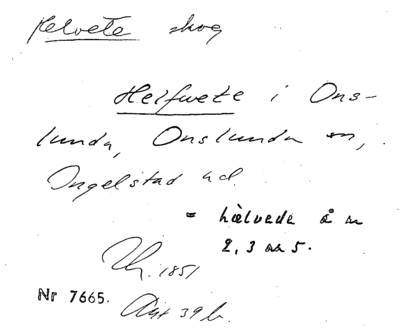 Helvete skog
Helfwete i Ons-
lunda, Onslunda sn,
Ingelstad hd.
= hælvede å m
2, 3 aa 5.
1851
Nr 7665. Akt 39 b.